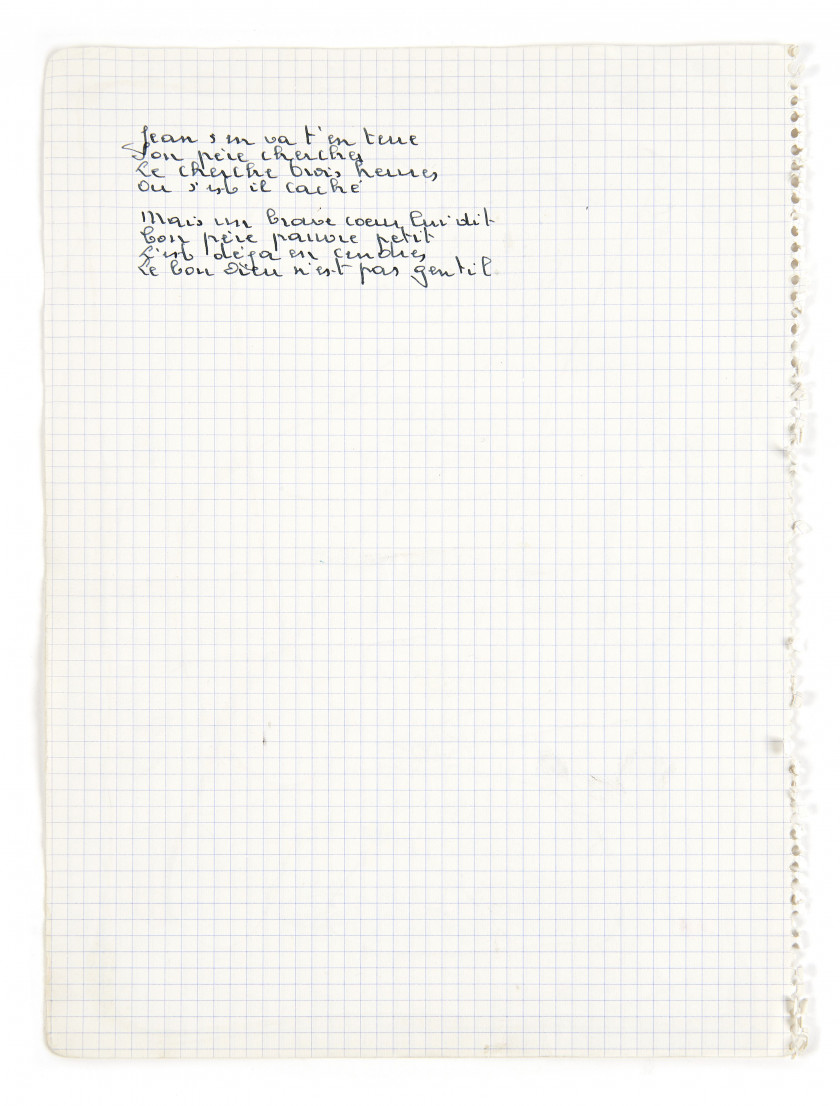 Jean s'en va t'en terre
Son père cherches
Le cherche trois heures
Ou s'est il caché
Mais un brave coeur lui dit
Bon père pauvre petit
L'est déja en cendres
Le bon Dieu n'est pas gentil